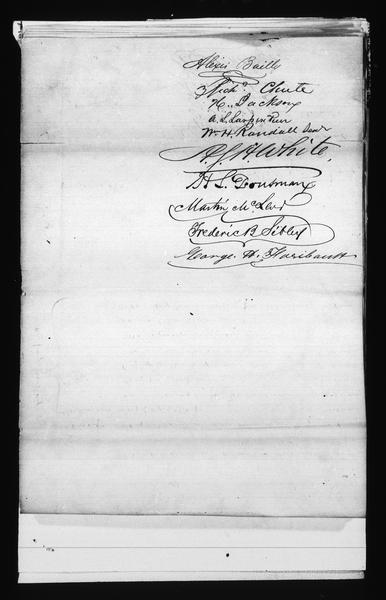 Alexis Bailly
Richd. Chute
H. Jackson
A. L. Larpenteur
Wm. H. Randall Senr
A. G. H. White,
H L. Dousman
Martin McLeod
Frederic B Sibley
George. H. Faribault